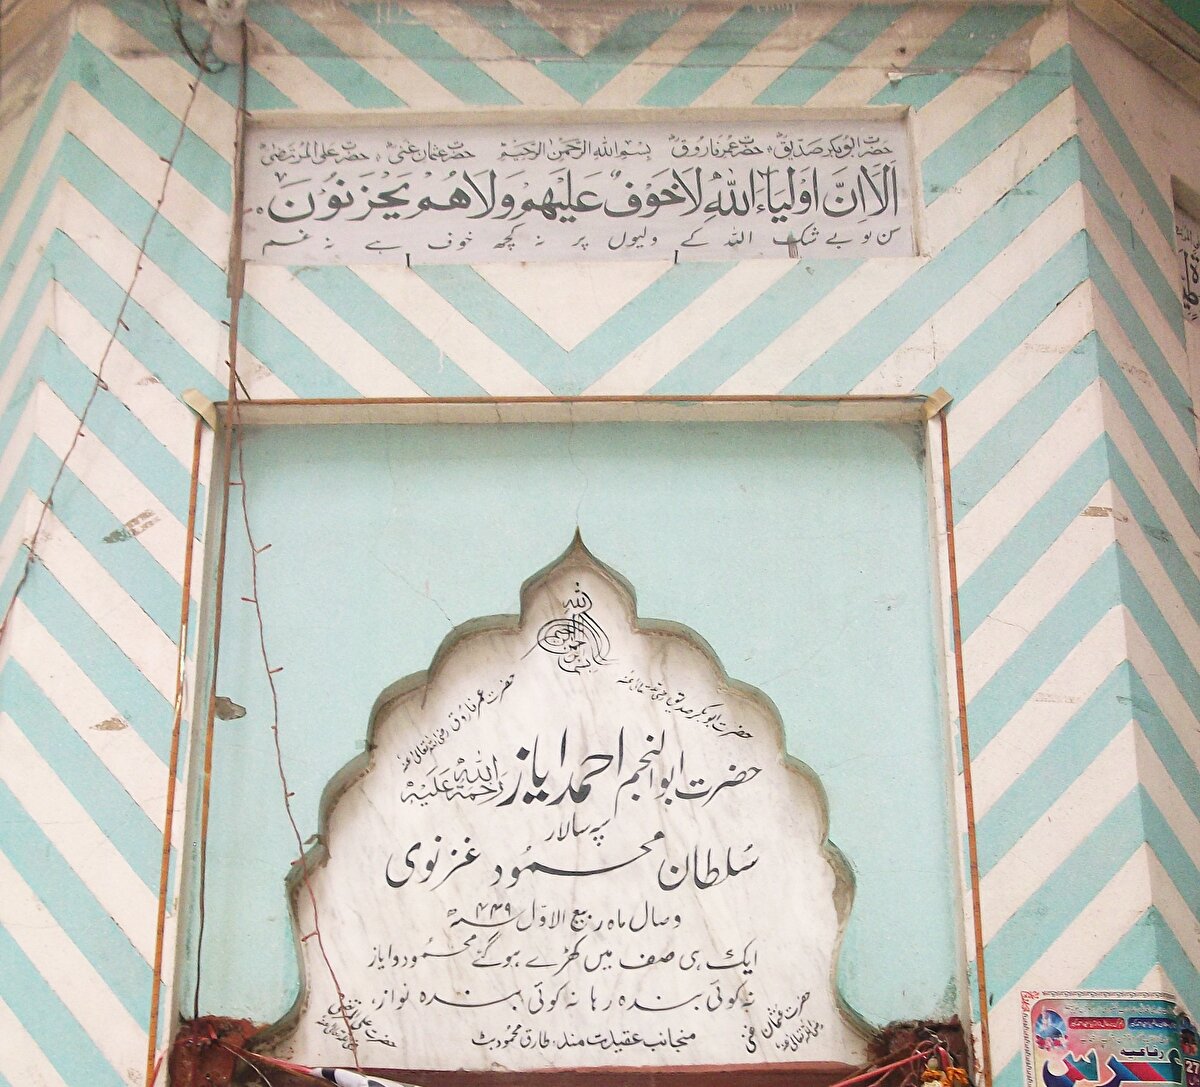 حضرت ابوبکر صدیقؓ حضرت عمر فاروقؓ بسم اللہ الرحمن الرحیم حضرت عثمان غنیؓ حضرت علی المرتضیؓ
اَلَا اِنَّ اَوْلِیَآءَ اللّٰهِ لَا خَوْفٌ عَلَیْهِمْ وَلَا هُمْ یَحْزَنُوْنَ
سن لو بے شک اللہ کے ولیوں پر نہ کچھ خوف ہے نہ غم
بسم اللہ الرحمن الرحیم
حضرت ابوبکر صدیق رضی اللہ تعالیٰ عنہ
حضرت عمر فاروق رضی اللہ تعالیٰ عنہ
حضرت ابوالنجم احمد ایاز رحمۃ اللہ علیہ
سپہ سالار
سُلطان محمُود غزنوی
وصال ماہ ربیع الاوّل ۴۳۹ھ
ایک ہی صف میں کھڑے ہو گئے محمُود و ایاز
نہ کوئی بندہ رہا نہ کوئی بندہ نواز،
حضرت عثمان غنی رضی اللہ تعالیٰ عنہ
حضرت علی المرتضیٰ رضی اللہ تعالیٰ عنہ
منجانب عقیدت مند، طارق محمود بٹ
عرس